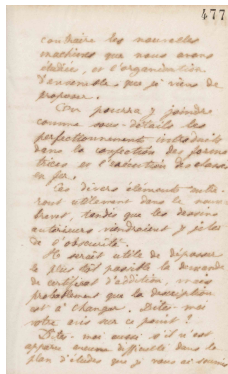 477
contraire les nouvelles
machines que nous avons
étudiées, et l'organisation
d'ensemble que je viens de
proposer.
On pourra y joindre
comme sous-détails les
perfectionnements introduits
dans la confection des formes
et l'exécution des
en fer.
Ces divers éléments
utilement dans le nouveau
brevet, tandis que les dessins
antérieurs viendraient y jeter
de l'obscurité.
Il serait utile de déposer
le plus tôt possible la demande
de certificat d'addition, mais
probablement que la description
est à changer. Dites-moi
votre avis sur ce point ?
Dites-moi aussi s'il s'est
apparu aucune difficulté dans le
plan d'études que je vous ai soumis